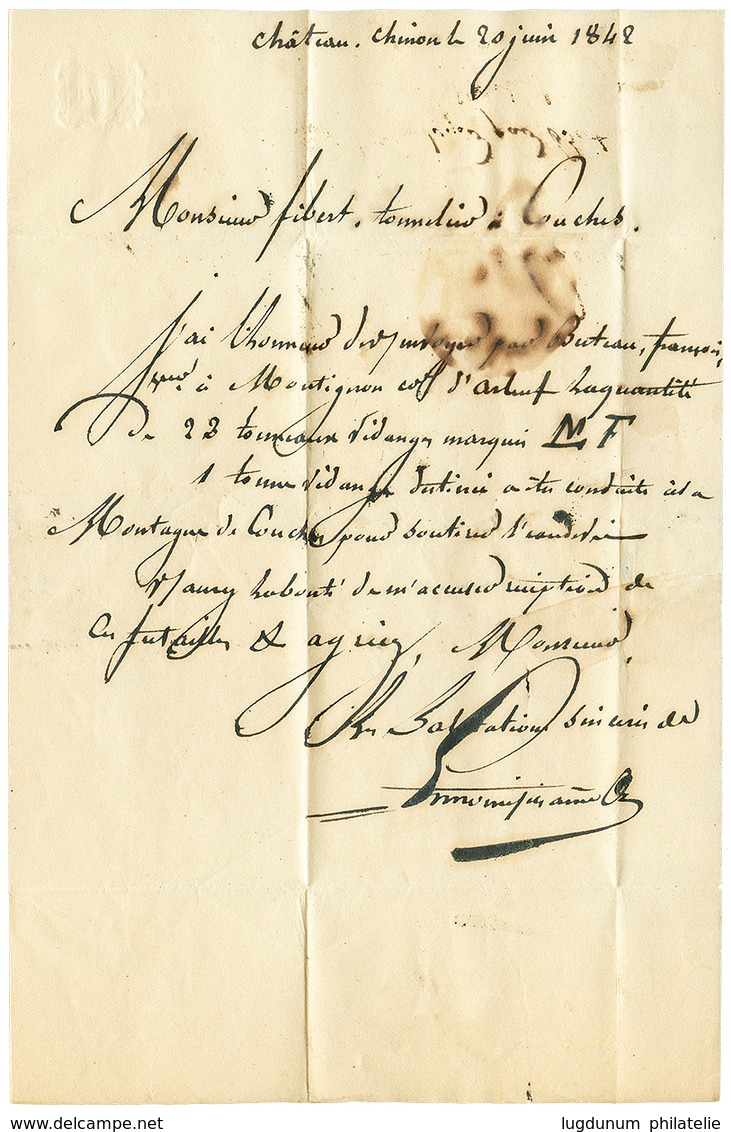 château. chinon le 20 juin 1842
Monsieur fibert, tonnelier à Couches.
J'ai l'honneur de v/ envoyer par Buteau, françois,
à Montignon cne d'arleuf la quantité
De 23 tonneaux vidanges marqués MF
1 tonne vidange destinée a etre conduite à la
Montagne de Couches pour soutirer l'eau de vie
v/ aurez la bonté de m'accuser réception de
Ces futailles & agréez, Monsieur,
Les Salutations sincères de
lugdunum philatelie
www.delcampe.net